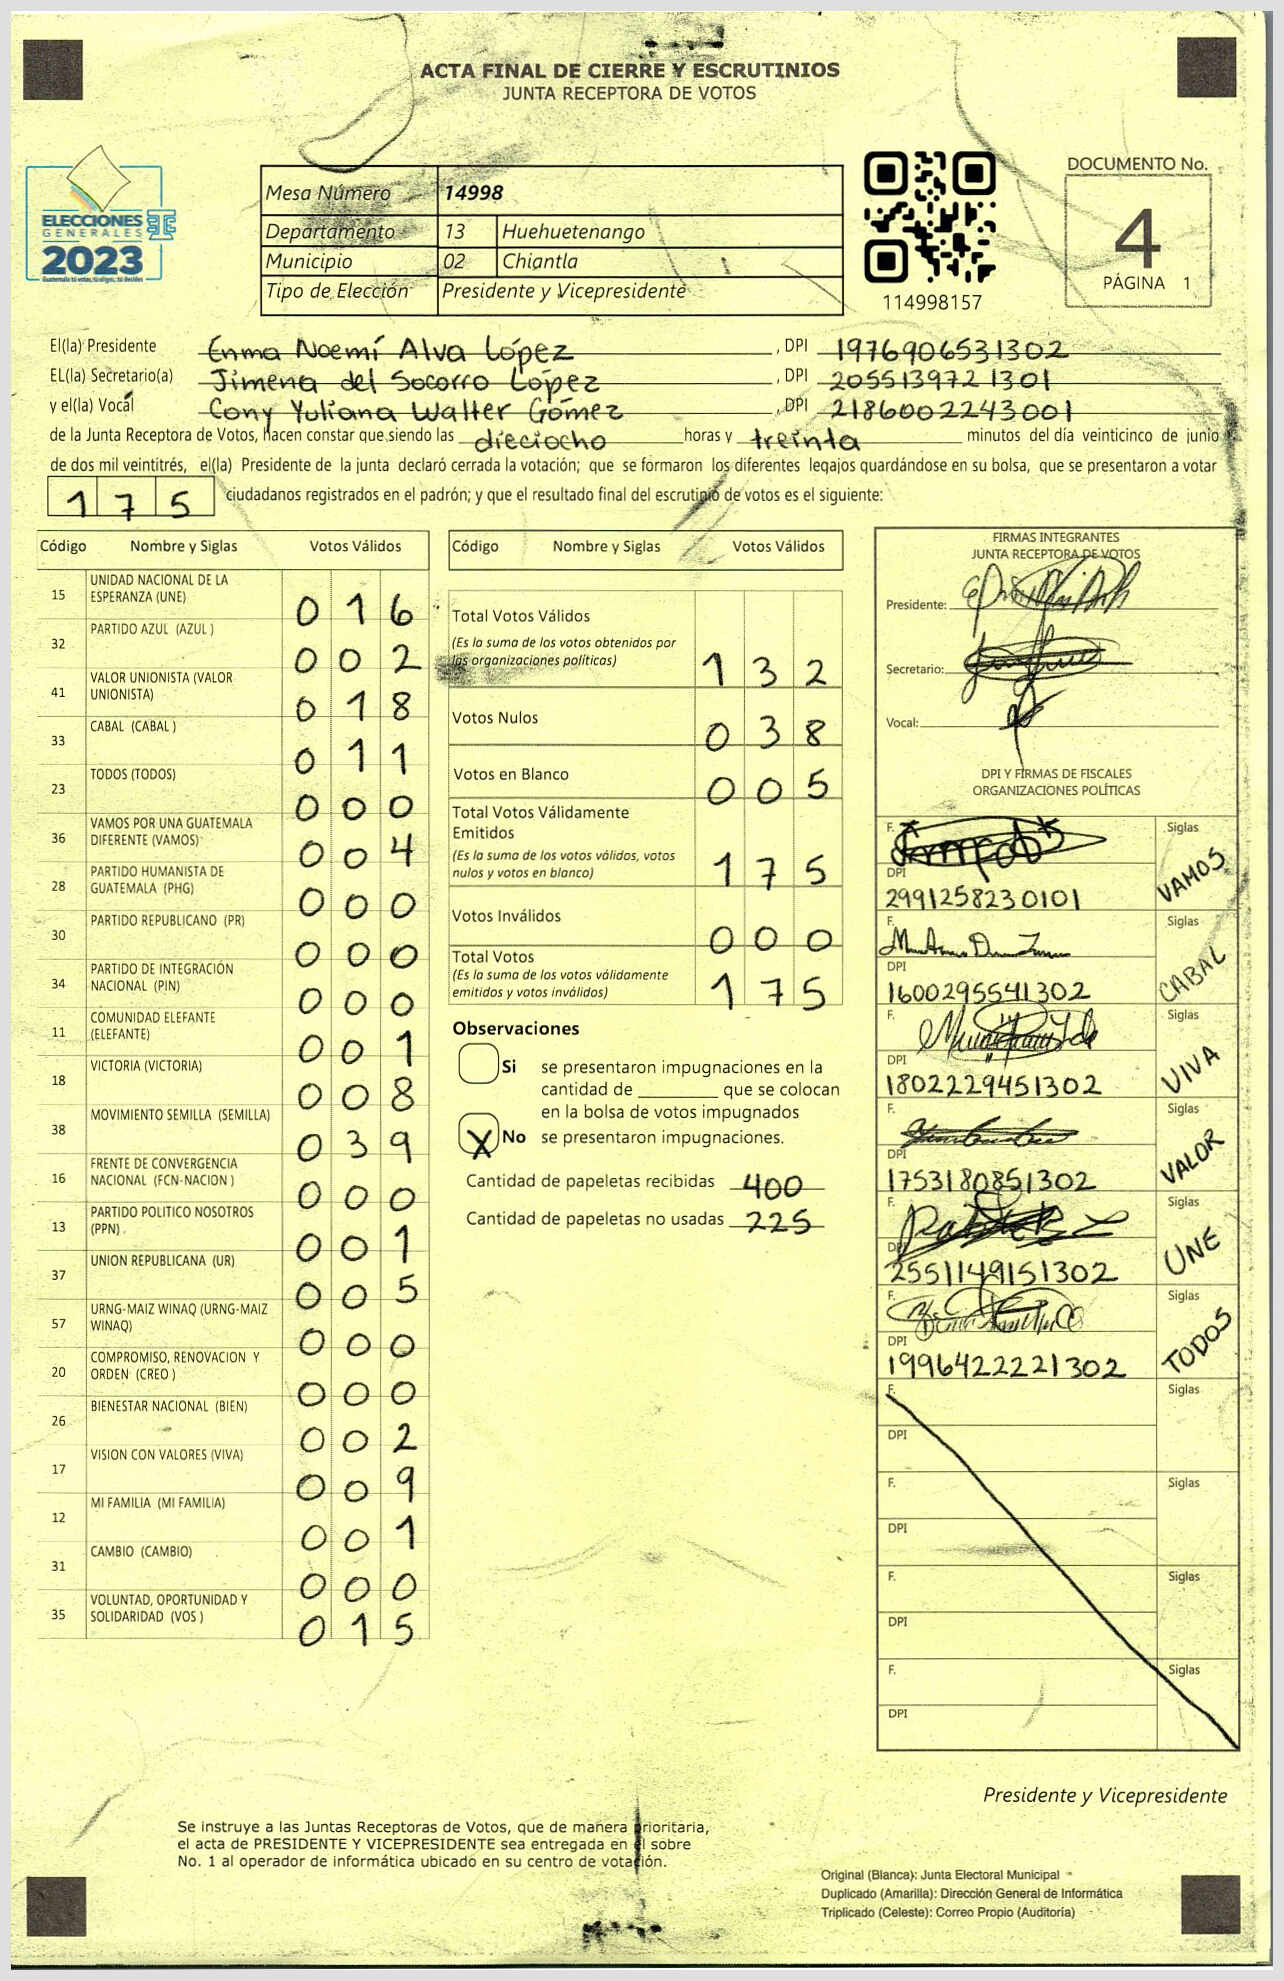 ACTA FINAL DE CIERRE Y ESCRUTINIOS
JUNTA RECEPTORA DE VOTOS
ELECCIONES
GENERALES
2023
Guatemala tú votas, tú eliges, tú decides
Mesa Número 14998
Departamento 13 Huehuetenango
Municipio 02 Chiantla
Tipo de Elección Presidente y Vicepresidente
114998157
DOCUMENTO No.
4
PÁGINA 1
El(la) Presidente Enma Noemí Alva López , DPI 1976906531302
EL(la) Secretario(a) Jimena del Socorro López , DPI 2055139721301
y el(la) Vocal Cony Yuliana Walter Gómez , DPI 2186002243001
de la Junta Receptora de Votos, hacen constar que siendo las dieciocho horas y treinta minutos del día veinticinco de junio
de dos mil veintitrés, el(la) Presidente de la junta declaró cerrada la votación; que se formaron los diferentes legajos guardándose en su bolsa, que se presentaron a votar
175 ciudadanos registrados en el padrón; y que el resultado final del escrutinio de votos es el siguiente:
Código Nombre y Siglas Votos Válidos
15 UNIDAD NACIONAL DE LA ESPERANZA (UNE) 016
32 PARTIDO AZUL (AZUL ) 002
41 VALOR UNIONISTA (VALOR UNIONISTA) 018
33 CABAL (CABAL ) 011
23 TODOS (TODOS) 000
36 VAMOS POR UNA GUATEMALA DIFERENTE (VAMOS) 004
28 PARTIDO HUMANISTA DE GUATEMALA (PHG) 000
30 PARTIDO REPUBLICANO (PR) 000
34 PARTIDO DE INTEGRACIÓN NACIONAL (PIN) 000
11 COMUNIDAD ELEFANTE (ELEFANTE) 001
18 VICTORIA (VICTORIA) 008
38 MOVIMIENTO SEMILLA (SEMILLA) 039
16 FRENTE DE CONVERGENCIA NACIONAL (FCN-NACION ) 000
13 PARTIDO POLITICO NOSOTROS (PPN) 001
37 UNION REPUBLICANA (UR) 005
57 URNG-MAIZ WINAQ (URNG-MAIZ WINAQ) 000
20 COMPROMISO, RENOVACION Y ORDEN (CREO ) 000
26 BIENESTAR NACIONAL (BIEN) 002
17 VISION CON VALORES (VIVA) 009
12 MI FAMILIA (MI FAMILIA) 001
31 CAMBIO (CAMBIO) 000
35 VOLUNTAD, OPORTUNIDAD Y SOLIDARIDAD (VOS ) 015
Código Nombre y Siglas Votos Válidos
Total Votos Válidos
(Es la suma de los votos obtenidos por
las organizaciones políticas) 132
Votos Nulos 038
Votos en Blanco 005
Total Votos Válidamente
Emitidos
(Es la suma de los votos válidos, votos
nulos y votos en blanco) 175
Votos Inválidos 000
Total Votos
(Es la suma de los votos válidamente
emitidos y votos inválidos) 175
Observaciones
Si se presentaron impugnaciones en la
cantidad de ________ que se colocan
en la bolsa de votos impugnados
X No se presentaron impugnaciones.
Cantidad de papeletas recibidas 400
Cantidad de papeletas no usadas 225
FIRMAS INTEGRANTES
JUNTA RECEPTORA DE VOTOS
Presidente:
Secretario:
Vocal:
DPI Y FIRMAS DE FISCALES
ORGANIZACIONES POLÍTICAS
F. Siglas
DPI
2991258230101 VAMOS
F. Siglas
DPI
1600295541302 CABAL
F. Siglas
DPI
1802229451302 VIVA
F. Siglas
DPI
1753180851302 VALOR
F. Siglas
DPI
2551149151302 UNE
F. Siglas
DPI
1996422221302 TODOS
F. Siglas
DPI
F. Siglas
DPI
F. Siglas
DPI
F. Siglas
DPI
Presidente y Vicepresidente
Se instruye a las Juntas Receptoras de Votos, que de manera prioritaria,
el acta de PRESIDENTE Y VICEPRESIDENTE sea entregada en el sobre
No. 1 al operador de informática ubicado en su centro de votación.
Original (Blanca): Junta Electoral Municipal
Duplicado (Amarilla): Dirección General de Informática
Triplicado (Celeste): Correo Propio (Auditoría)